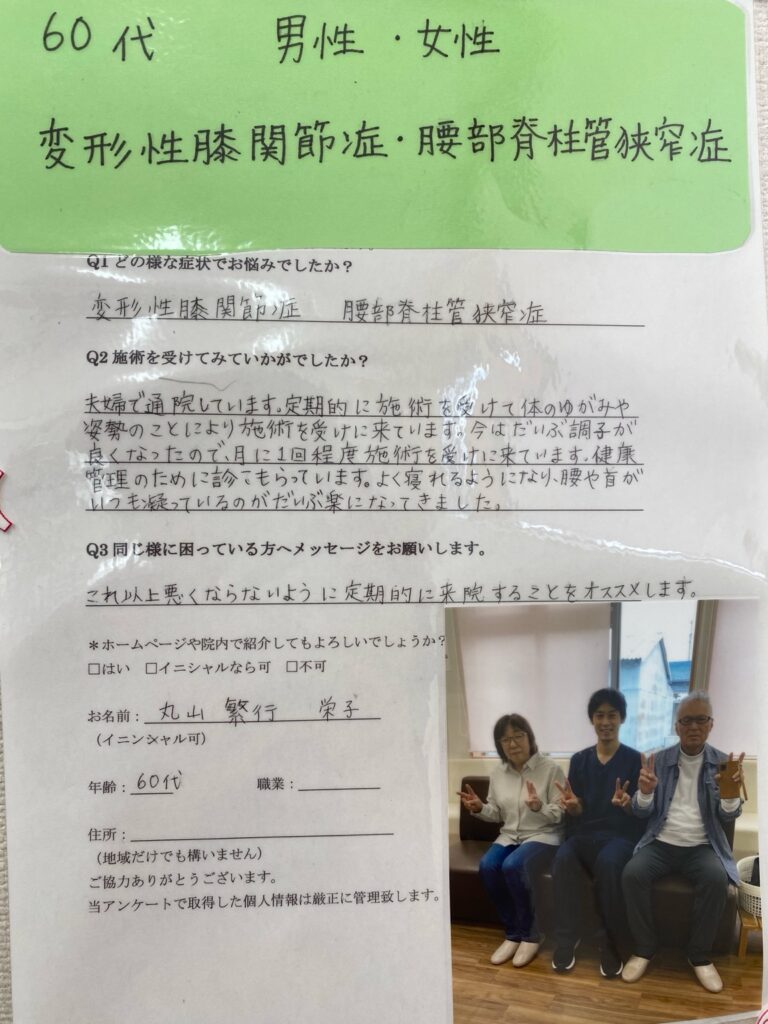 60代　男性・女性
変形性膝関節症・腰部脊柱管狭窄症
Q1 どの様な症状でお悩みでしたか？
変形性膝関節症　腰部脊柱管狭窄症
Q2 施術を受けてみていかがでしたか？
夫婦で通院しています。定期的に施術を受けて体のゆがみや
姿勢のことにより施術を受けに来ています。今はだいぶ調子が
良くなったので、月に1回程度施術を受けに来ています。健康
管理のために診てもらっています。よく寝れるようになり、腰や首が
いつも凝っているのがだいぶ楽になってきました。
Q3 同じ様に困っている方へメッセージをお願いします。
これ以上悪くならないように定期的に来院することをオススメします。
＊ホームページや院内で紹介してもよろしいでしょうか？
□はい　□イニシャルなら可　□不可
お名前：丸山 繁行　栄子
（イニンシャル可）
年齢：60代　職業：
住所：
（地域だけでも構いません）
ご協力ありがとうございます。
当アンケートで取得した個人情報は厳正に管理致します。